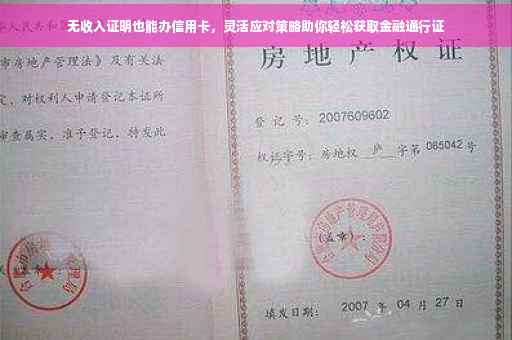 无收入证明也能办信用卡，灵活应对策略助你轻松获取金融通行证
市房地产管理法》及有关法
定，对权利人申请登记本证所
审查属实，准予登记，特发此
房地产权证
登记号：2007609602
权证字号：房地权 庐 字第 085042 号
（盖章）：
填发日期：2007 年 04 月 27 日